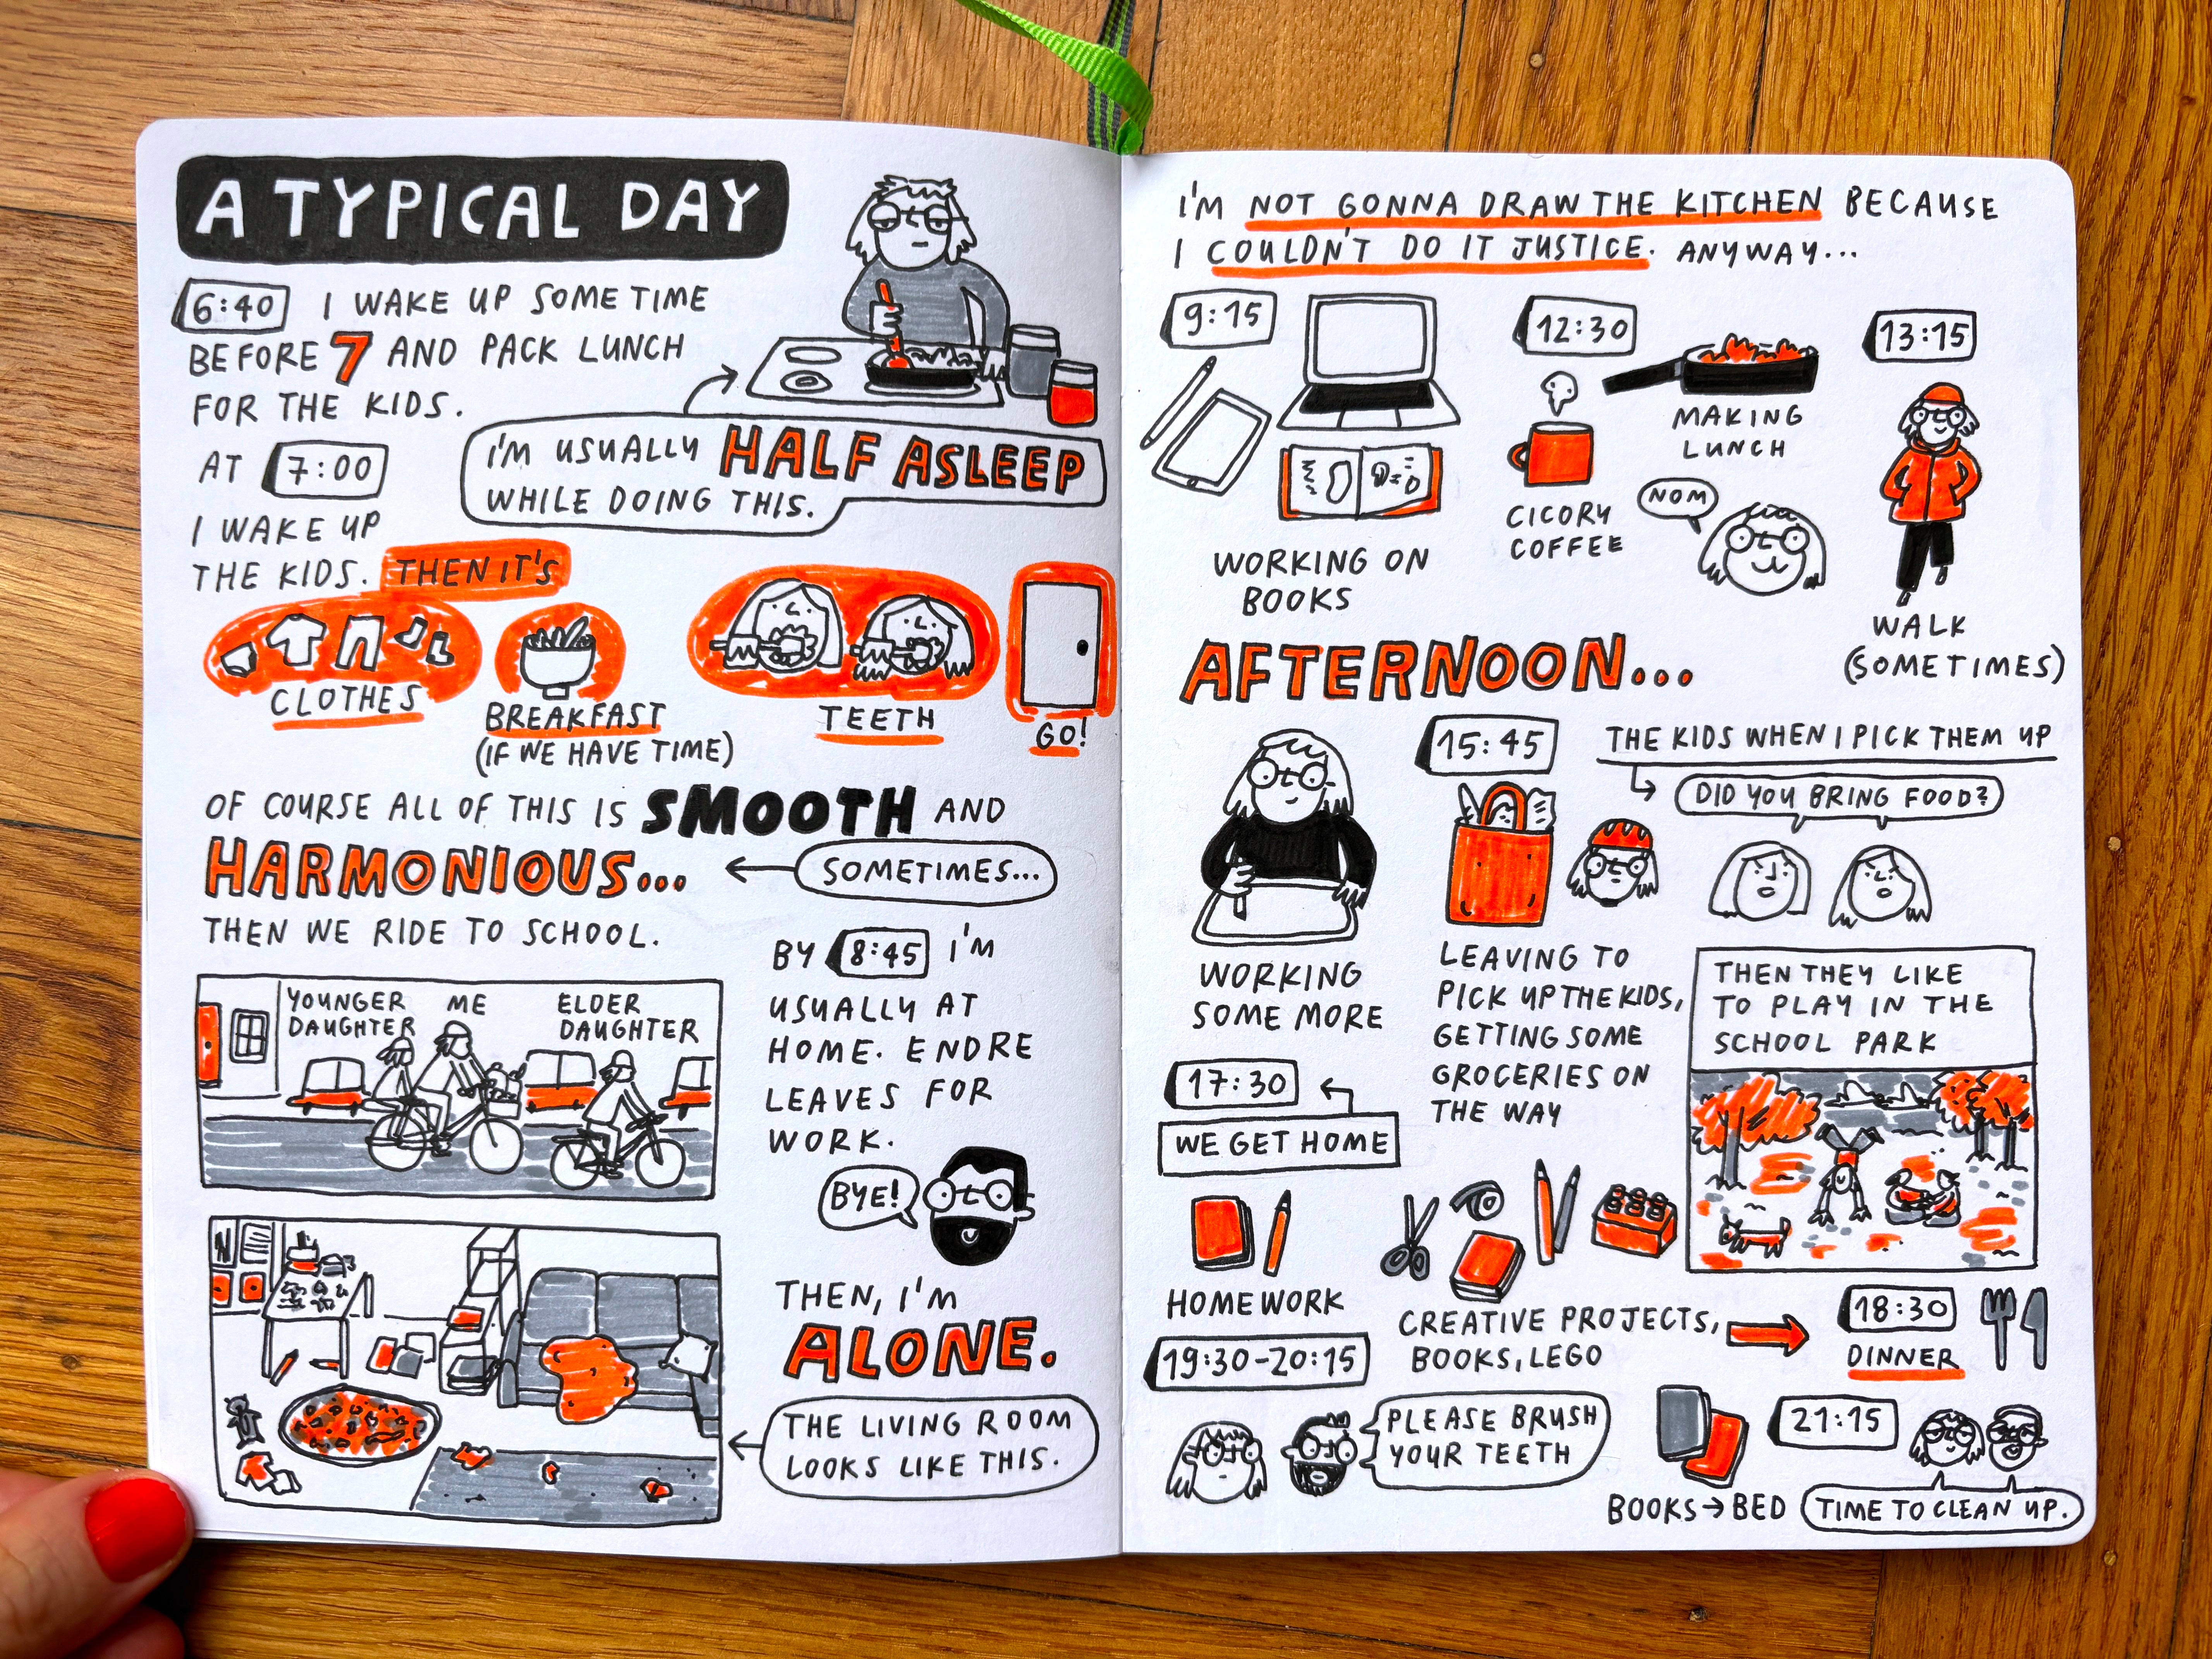 A TYPICAL DAY
6:40 I WAKE UP SOMETIME
BEFORE 7 AND PACK LUNCH
FOR THE KIDS.
I'M USUALLY HALF ASLEEP
WHILE DOING THIS.
AT 7:00
I WAKE UP
THE KIDS. THEN IT'S
CLOTHES
BREAKFAST
(IF WE HAVE TIME)
TEETH
GO!
OF COURSE ALL OF THIS IS SMOOTH AND
HARMONIOUS...
SOMETIMES...
THEN WE RIDE TO SCHOOL.
YOUNGER
DAUGHTER
ME
ELDER
DAUGHTER
BY 8:45 I'M
USUALLY AT
HOME. ENDRE
LEAVES FOR
WORK.
BYE!
THEN, I'M
ALONE.
THE LIVING ROOM
LOOKS LIKE THIS.
I'M NOT GONNA DRAW THE KITCHEN BECAUSE
I COULDN'T DO IT JUSTICE. ANYWAY...
9:15
WORKING ON
BOOKS
12:30
CICORY
COFFEE
MAKING
LUNCH
NOM
13:15
WALK
(SOMETIMES)
AFTERNOON...
WORKING
SOME MORE
15:45
LEAVING TO
PICK UP THE KIDS,
GETTING SOME
GROCERIES ON
THE WAY
THE KIDS WHEN I PICK THEM UP
DID YOU BRING FOOD?
THEN THEY LIKE
TO PLAY IN THE
SCHOOL PARK
17:30
WE GET HOME
HOMEWORK
CREATIVE PROJECTS,
BOOKS, LEGO
18:30
DINNER
19:30-20:15
PLEASE BRUSH
YOUR TEETH
BOOKS→BED
21:15
TIME TO CLEAN UP.